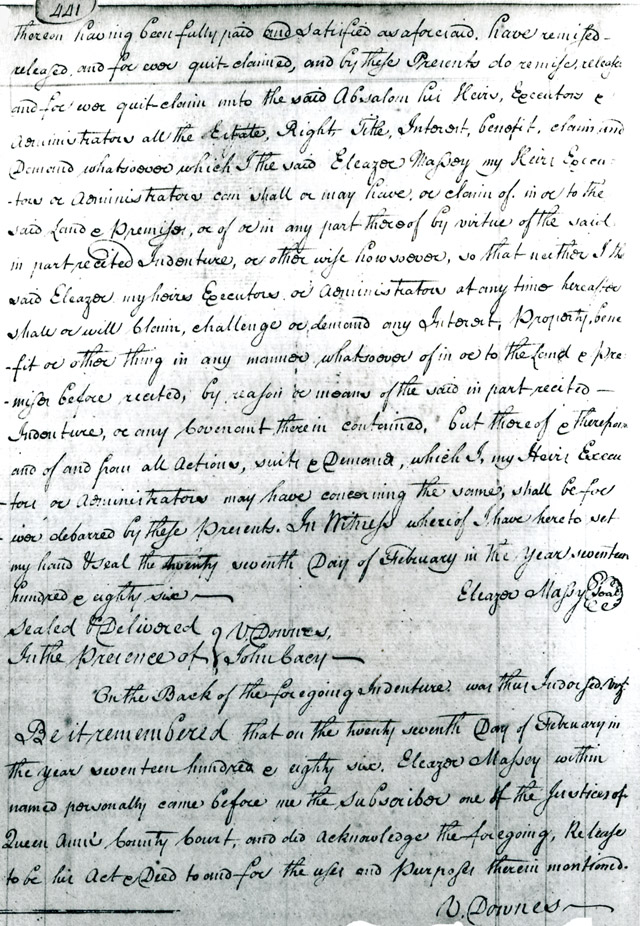 441
thereon having been fully paid and satisfied as aforesaid. have remised-
released, and for ever quit-claimed, and by these Presents do remise, release
and for ever quit-claim unto the said Absalom his Heirs, Executors &
Administrators all the Estate, Right Title, Interest, benefit, claim and
Demand whatsoever which I the said Eleazer Massey my Heirs Execu-
-tors or Administrators can shall or may have, or claim of, in or to the
said Land & Premises, or of or in any part thereof by virtue of the said
in part recited Indenture, or other wise howsoever, so that neither I the
said Eleazer, my heirs Executors, or Administrators at any time hereafter
shall or will Claim, challenge or demand any Interest, Property, bene
-fit or other thing in any manner whatsoever of in or to the Land & Pre-
-mises before recited, by reason or means of the said in part recited —
Indenture, or any Covenant therein contained, but thereof & therefrom
and of and from all Actions, suits & Demands, which I, my Heirs Execu
-tors or Administrators may have concerning the same, shall be for
-ever debarred by these Presents. In Witness whereof I have hereto set
my hand & seal the twenty seventh Day of February in the Year seventeen
hundred & eighty six —
Eleazer Massy Seal
Sealed & Delivered V Downes,
In the Presence of John Cacy —
On the Back of the foregoing Indenture was thus Indorsed, Viz.
Be it remembered that on the twenty seventh Day of February in
the year seventeen hundred & eighty six. Eleazer Massey within
named personally came before me the subscriber one of the Justices of
Queen Anns County Court, and did acknowledge the foregoing, Release
to be his Act & Deed to and for the uses and Purposes therein mentioned.
V. Downes —